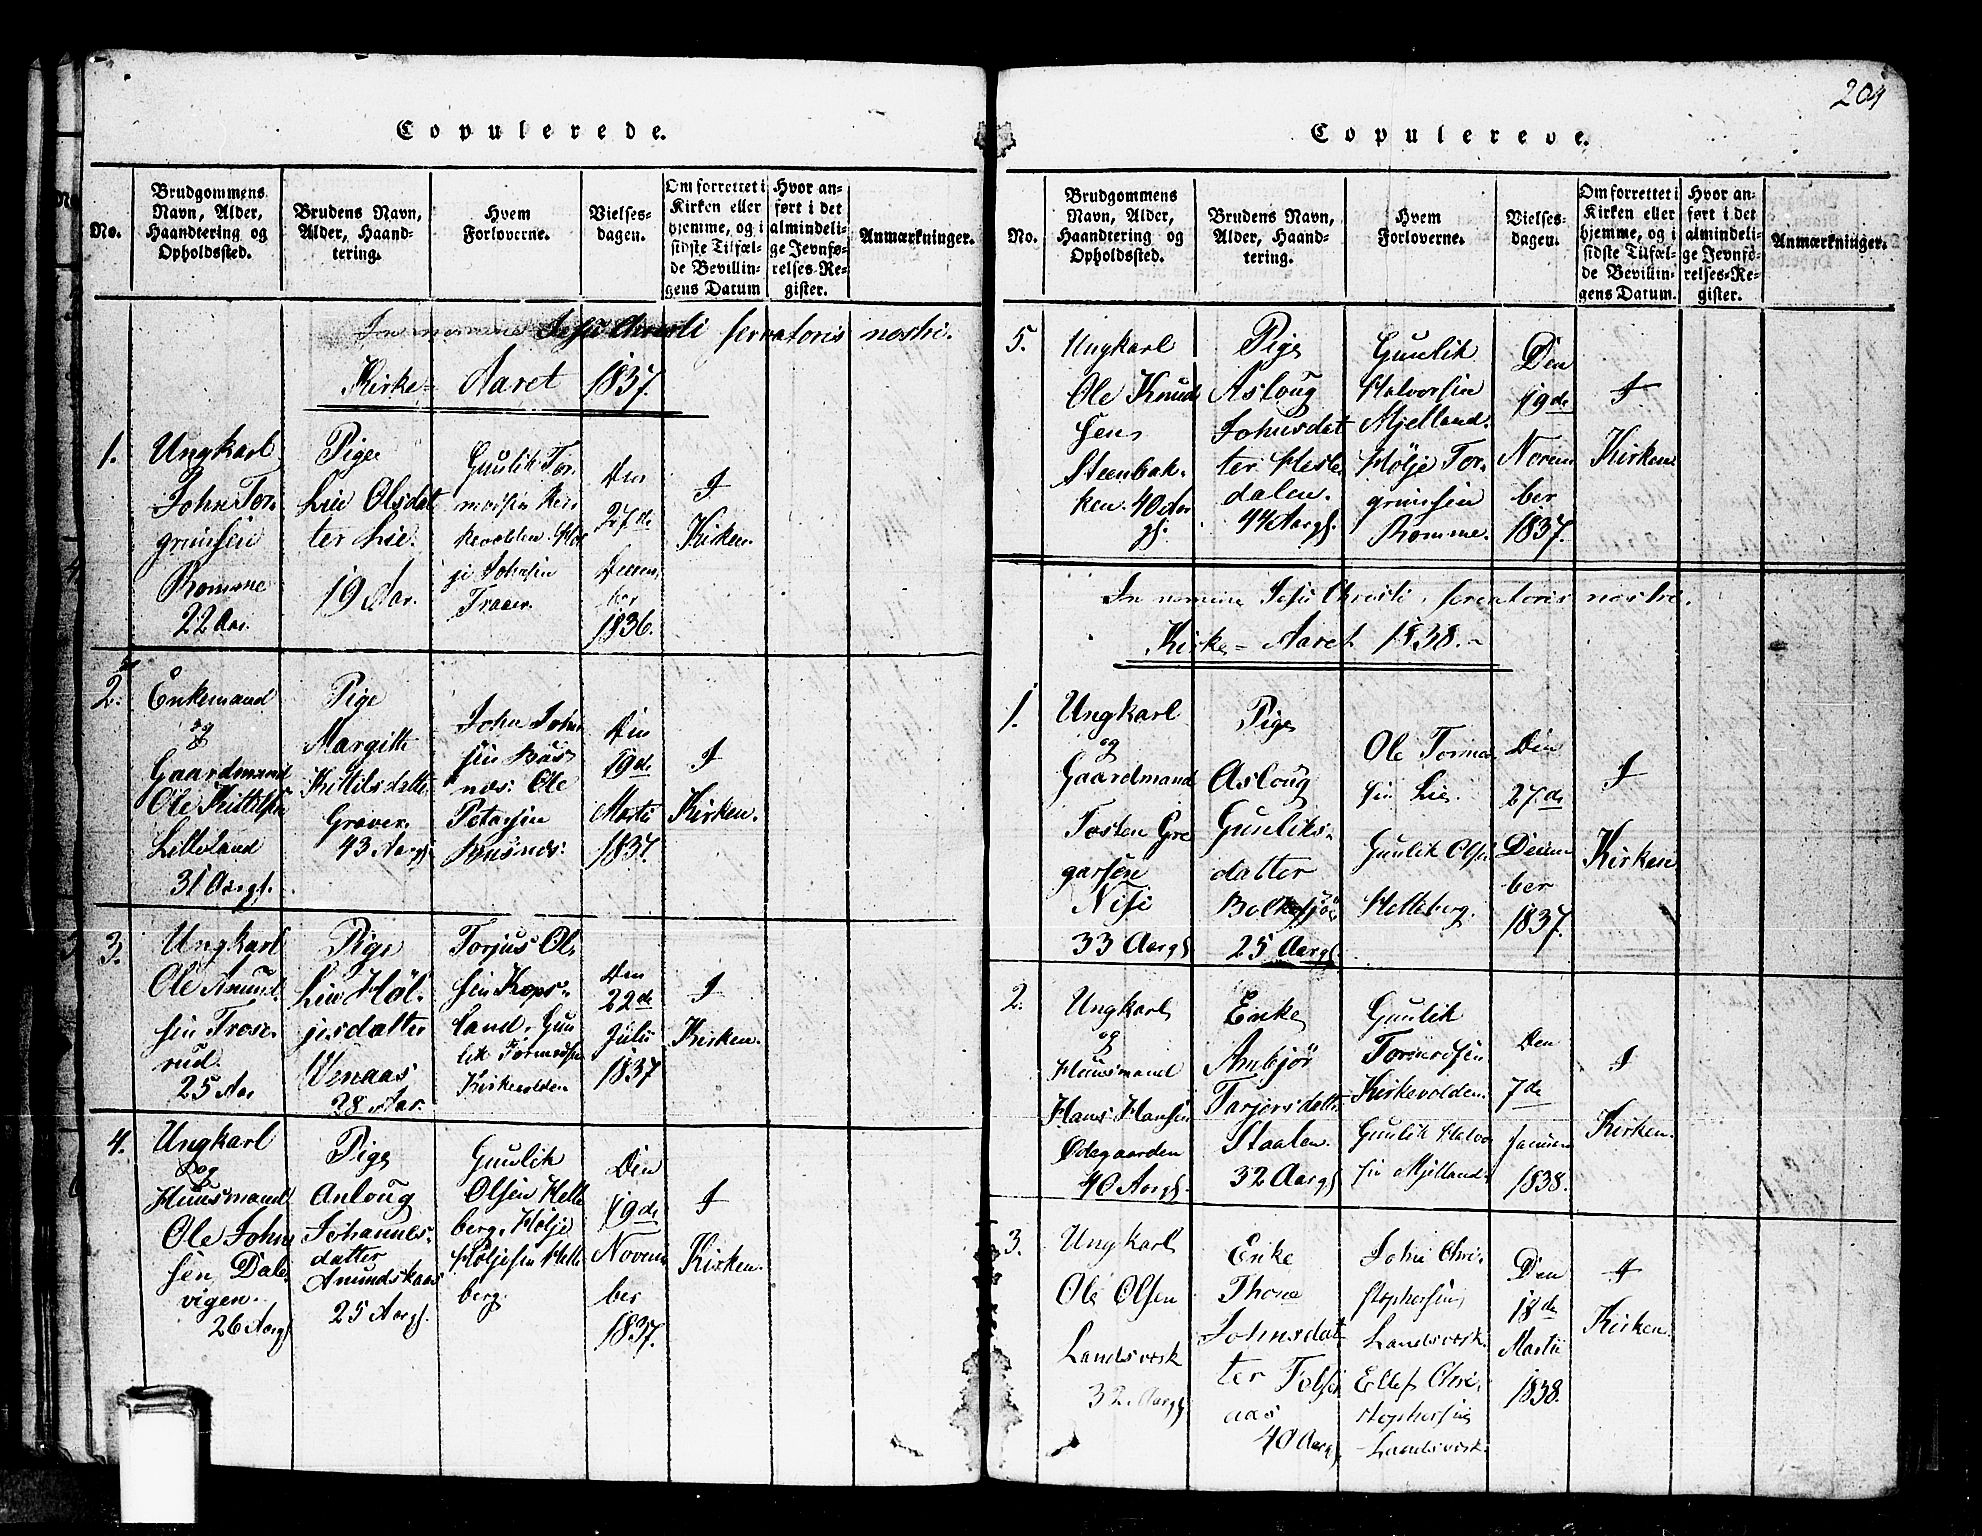 204
Copulerede.
No.
Brudgommens
Navn, Alder,
Haandtering og
Opholdssted.
Brudens Navn,
Alder, Haand-
tering.
Hvem
Forloverne.
Vielses-
dagen.
Om forrettet i
Kirken eller
hjemme, og i
sidste Tilfæl-
de Bevillin-
gens Datum
Hvor an-
ført i det
almindeli-
ge Jevnfø-
relses-Re-
gister.
Anmærkninger.
In nomine Jesu Christi servatoris nostri.
Kirke-Aaret 1837.
1.
Ungkarl
John Tor-
grimsen
Romme
22 Aar.
Pige
Liv Olsdat
ter Lie.
19 Aar.
Gunlik Tor-
Traaen
Den
27de
Decem
ber
1836.
I
Kirken.
2.
Enkemand
og
Gaardmand
Ole Kittilsen
Lilleland
31 Aargl.
Pige
Margith
Kittilsdatter
Graver.
43 Aargl
John John
sen Bus
nes: Ole
Petersen
Busnes:
Den
19de
Marti
1837.
I
Kirken.
3.
Ungkarl
Ole Amund
sen Trose-
rud.
25 Aar
Pige
Liv Høl-
jesdatter
Venaas
28 Aar.
Torjus Ol-
sen Kops-
land, Gun
lik Tormodsen
Kirkevolden
Den
22de
Julii
1837
I
Kirken.
4.
Ungkarl
og
Huusmand
Ole Johns
sen Dale-
vigen.
26 Aargl
Pige
Anloug
Johannes-
datter
Amundskaas
25 Aargl.
Gunlik
Olsen Helle
berg. Hølje
Høljesen Helle
berg.
Den
19de
Novem
ber
1837.
I
Kirken.
Copulerede.
No.
Brudgommens
Navn, Alder,
Haandtering og
Opholdssted.
Brudens Navn,
Alder, Haand-
tering.
Hvem
Forloverne.
Vielses-
dagen.
Om forrettet i
Kirken eller
hjemme, og i
sidste Tilfæl-
de Bevillin-
gens Datum.
Hvor an-
ført i det
almindeli-
ge Jevnfø-
relses-Re-
gister.
Anmærkninger.
5.
Ungkarl
Ole Knud
sen
Steenbak-
ken. 40 Aar
gl.
Pige
Asloug
Johnsdat
ter Hesle
dalen.
44 Aargl.
Gunlik
Halvorsen
Mjelland.
Hølje Tor-
grimsen
Romme.
Den
19de
Novem
ber
1837.
I
Kirken
In nomine Jesu Christi, servatoris nostri.
Kirke-Aaret 1838.-
1.
Ungkarl
og
Gaardmand
Tosten Gre
garsen
Nisi
33 Aargl
Pige
Asloug
Gunliks-
datter
Bolkesjøe
25 Aargl
Ole Tormo
sen Lie.
Gunlik Olsen
Helleberg.
Den
27.de
Decem
ber
1837.
I
Kirken
2.
Ungkarl
og
Huusmand
Hans Hansen
Ødegaarden
40 Aargl.
Enke
Anbjør
Tarjersdatter
Staalen.
32 Aargl
Gunlik
Tormodsen
Kirkevolden.
Gunlik Halvor
sen Mjelland
Den
7de
Januar
1838.
I
Kirken.
3.
Ungkarl
Ole Olsen
Landsværk
32 Aargl
Enke
Thone
Johnsdat
ter Folse
aas
40 Aargl
John Chri-
stophersen
Landsværk
Ellef Chri-
stophersen
Landsværk.
Den
18de
Martii
1838.
I
Kirken.